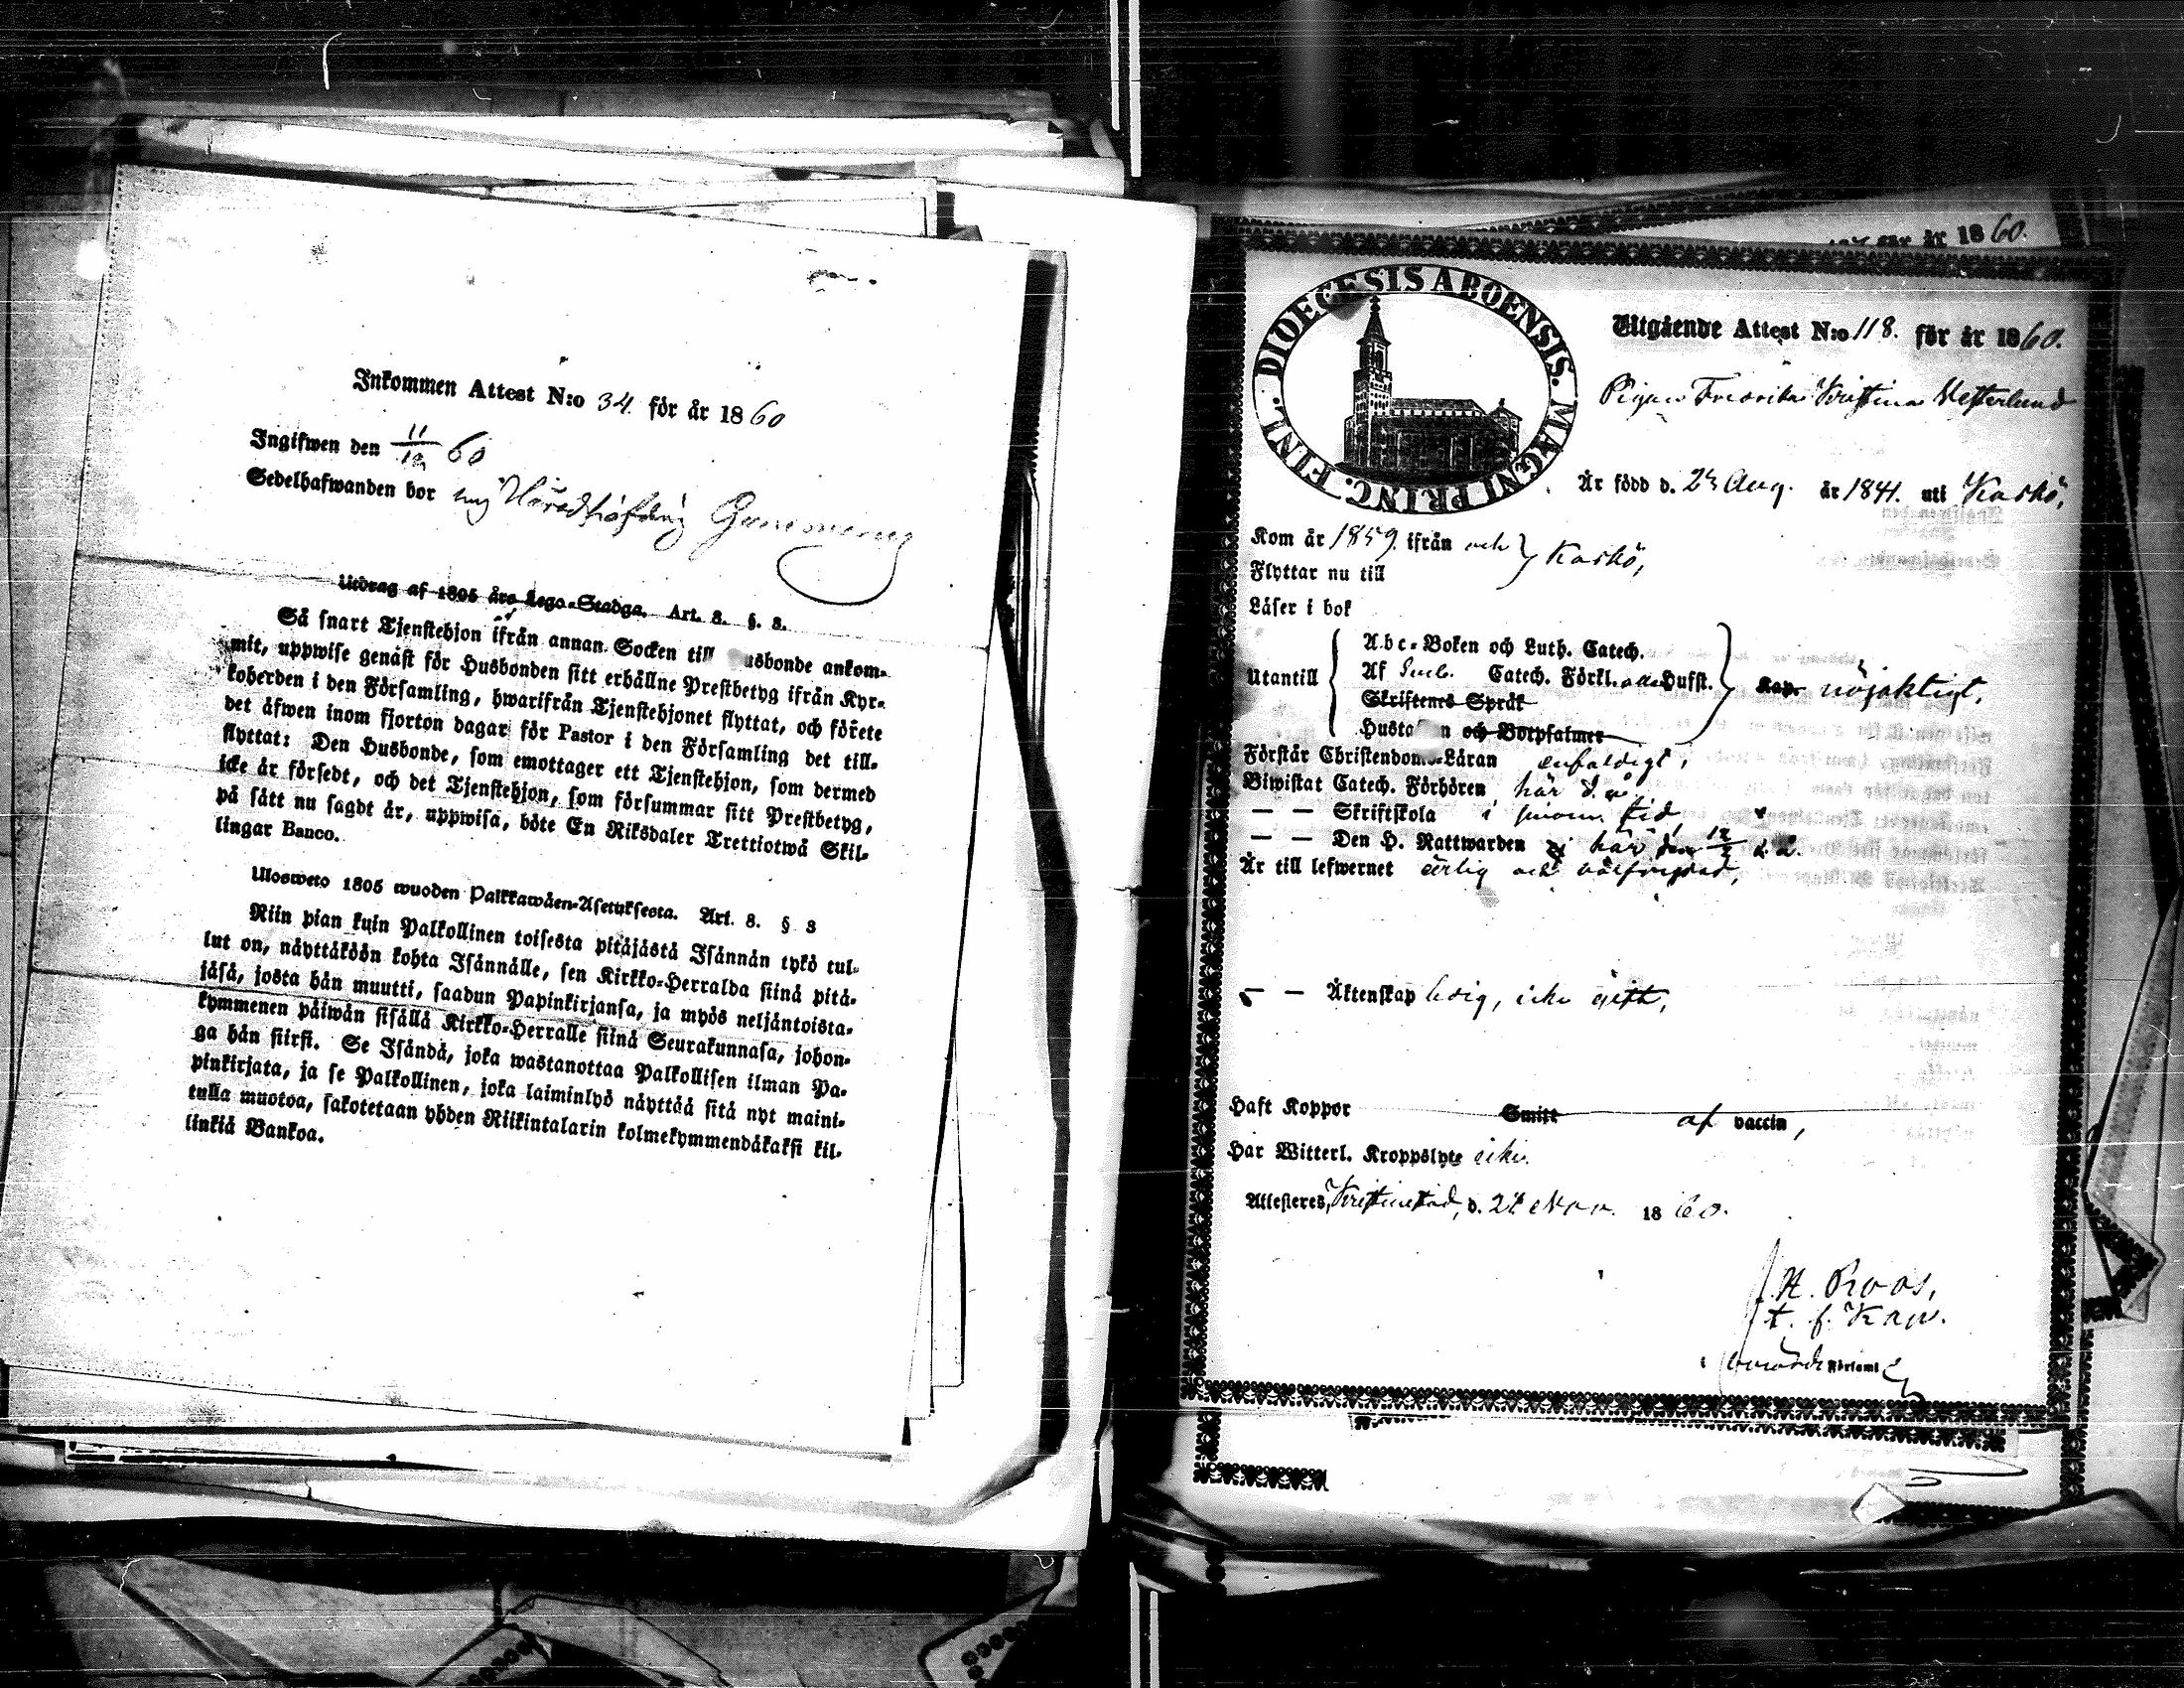 Inkommen Attest N:o 34. för år 1860
Ingifwen den 11/12 60
Sedelhafwanden bor
Utdrag af 1805 års Lego-Stadga. Art. 8. §. 3.
Så snart Tjenstehjon ifrån annan Socken till usbonde ankom-
mit, uppwise genast för Husbonden sitt erhållne Prestbetyg ifrån Kyr-
koherden i den Församling, hwarifrån Tjenstehjonet flyttat, och förete
det äfwen inom fjorton dagar för Pastor i den Församling det till-
flyttat: Den Husbonde, som emottager ett Tjenstehjon, som dermed
icke är försedt, och det Tjenstehjon, som försummar sitt Prestbetyg,
på sätt nu sagdt är, uppwisa, böte En Riksdaler Trettiotwå Skil-
lingar Banco.
Ulosweto 1805 wuoden Palkkawäen-Asetuksesta. Art. 8. § 3
Niin pian kuin Palkollinen toisesta pitäjästä Isännän tykö tul-
lut on, näyttäköön kohta Isännälle, sen Kirkko-Herralda siinä pitä-
jäsä, josta hän muutti, saadun Papinkirjansa, ja myös neljäntoista-
kymmenen päiwän sisällä Kirkko-Herralle siinä Seurakunnasa, johon-
ga hän siirsi. Se Isändä, joka wastanottaa Palkollisen ilman Pa-
pinkirjata, ja se Palkollinen, joka laiminlyö näyttää sitä nyt maini-
tulla muotoa, sakotetaan yhden Riikintalarin kolmekymmendäkaksi kil-
linkiä Bankoa.
för år 1860.
DIOECESIS ABOENSIS. MAGNI PRINC. FINL.
Utgående Attest N:o 118. för år 1860.
Pigan Fredrika Kristina Westerlund
Är född d. 23 Aug. år 1841. uti Kaskö,
Kom år 1859. ifrån och } Kaskö,
Flyttar nu till
Läser i bok
Abc-Boken och Luth. Catech.
Utantill Af Catech. Förkl. Hust. nöjaktigt.
Skriftenes Språk
Husta n och Botpsalmer
Förstår Christendoms-Läran enfaldigt,
Biwistat Catech. Förhören här d. å.
— — Skriftskola i sinom tid,
— — Den H. Nattwarden här den
Är till lefwernet ärlig och välfrejdad,
— — Äktenskap ledig, icke gift,
Haft Koppor Smitt af vaccin,
Har Witterl. Kroppslyte icke.
Attesteres, Kristinestad, d. 24 Nov. 1860.
H. Roos,
t. f. Kapv.
Församl